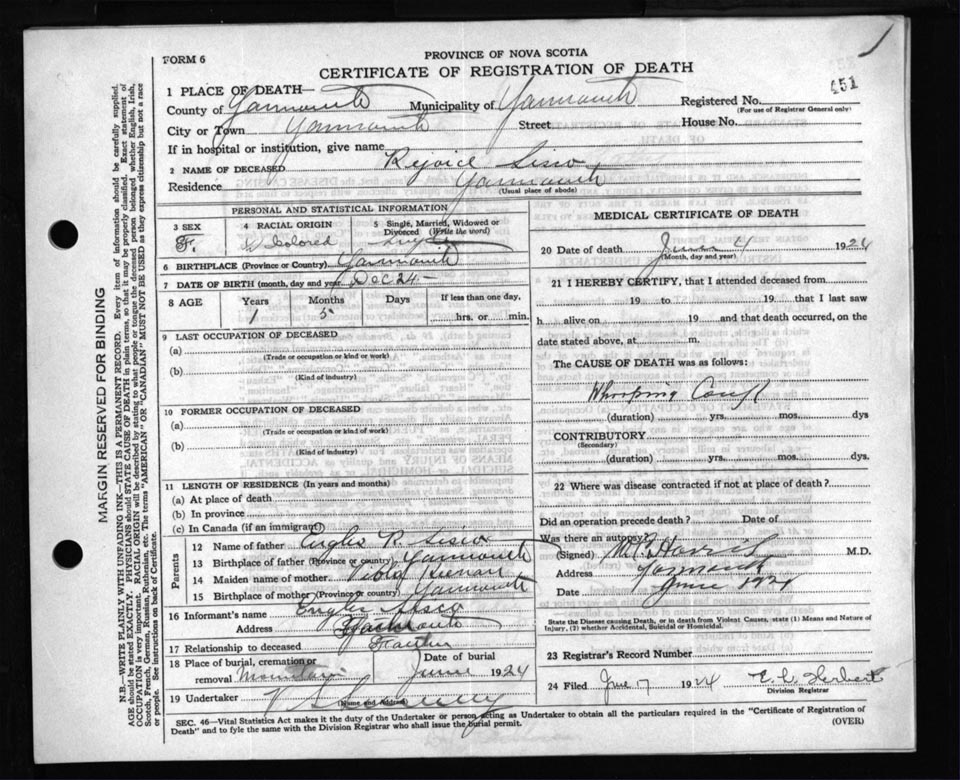 FORM 6
PROVINCE OF NOVA SCOTIA
CERTIFICATE OF REGISTRATION OF DEATH
451
1 PLACE OF DEATH—
County of Yarmouth Municipality of Yarmouth Registered No.
(For use of Registrar General only)
City or Town Yarmouth Street House No.
If in hospital or institution, give name
2 NAME OF DECEASED Rejoice Sisco
Residence Yarmouth
(Usual place of abode)
PERSONAL AND STATISTICAL INFORMATION
3 SEX 4 RACIAL ORIGIN 5 Single, Married, Widowed or Divorced (Write the word)
F. Colored Single
6 BIRTHPLACE (Province or Country) Yarmouth
7 DATE OF BIRTH (month, day and year) Dec 24 —
8 AGE Years Months Days If less than one day,
1 5 hrs. or min.
9 LAST OCCUPATION OF DECEASED
(a)
(Trade or occupation or kind or work)
(b)
(Kind of industry)
10 FORMER OCCUPATION OF DECEASED
(a)
(Trade or occupation or kind of work)
(b)
(Kind of industry)
11 LENGTH OF RESIDENCE (In years and months)
(a) At place of death
(b) In province
(c) In Canada (if an immigrant)
Parents
12 Name of father R. Sisco
13 Birthplace of father (Province or country) Yarmouth
14 Maiden name of mother Viola
15 Birthplace of mother (Province or country) Yarmouth
16 Informant's name Sisco
Address Yarmouth
17 Relationship to deceased Father
18 Place of burial, cremation or removal Mountain Date of burial June 1924
19 Undertaker
(Name and Address)
MEDICAL CERTIFICATE OF DEATH
20 Date of death June 4 1924
(Month, day and year)
21 I HEREBY CERTIFY, that I attended deceased from
19 to 19 that I last saw
h alive on 19 and that death occurred, on the
date stated above, at m.
The CAUSE OF DEATH was as follows:
Whooping Cough
(duration) yrs. mos. dys
CONTRIBUTORY
(Secondary)
(duration) yrs. mos. dys.
22 Where was disease contracted if not at place of death?
Did an operation precede death? Date of
Was there an autopsy?
(Signed) M.D.
Address Yarmouth
Date June 1924
State the Disease causing Death, or in death from Violent Causes, state (1) Means and Nature of Injury, (2) whether Accidental, Suicidal or Homicidal.
23 Registrar's Record Number
24 Filed June 17 1924 E. C. Herbert
Division Registrar
SEC. 46—Vital Statistics Act makes it the duty of the Undertaker or person acting as Undertaker to obtain all the particulars required in the "Certificate of Registration of
Death" and to fyle the same with the Division Registrar who shall issue the burial permit. (OVER)
MARGIN RESERVED FOR BINDING
N.B.—WRITE PLAINLY WITH UNFADING INK—THIS IS A PERMANENT RECORD. Every item of information should be carefully supplied.
AGE should be stated EXACTLY. PHYSICIANS should STATE CAUSE OF DEATH in plain terms, so that it may be properly classified. Exact statement of
OCCUPATION is very important. RACIAL ORIGIN will be described by stating to what people or tongue the deceased person belonged whether English, Irish,
Scotch, French, German, Russian, Ruthenian, etc. The terms "AMERICAN" OR "CANADIAN" MUST NOT BE USED as they express citizenship but not a race
or people. See instructions on back of Certificate.